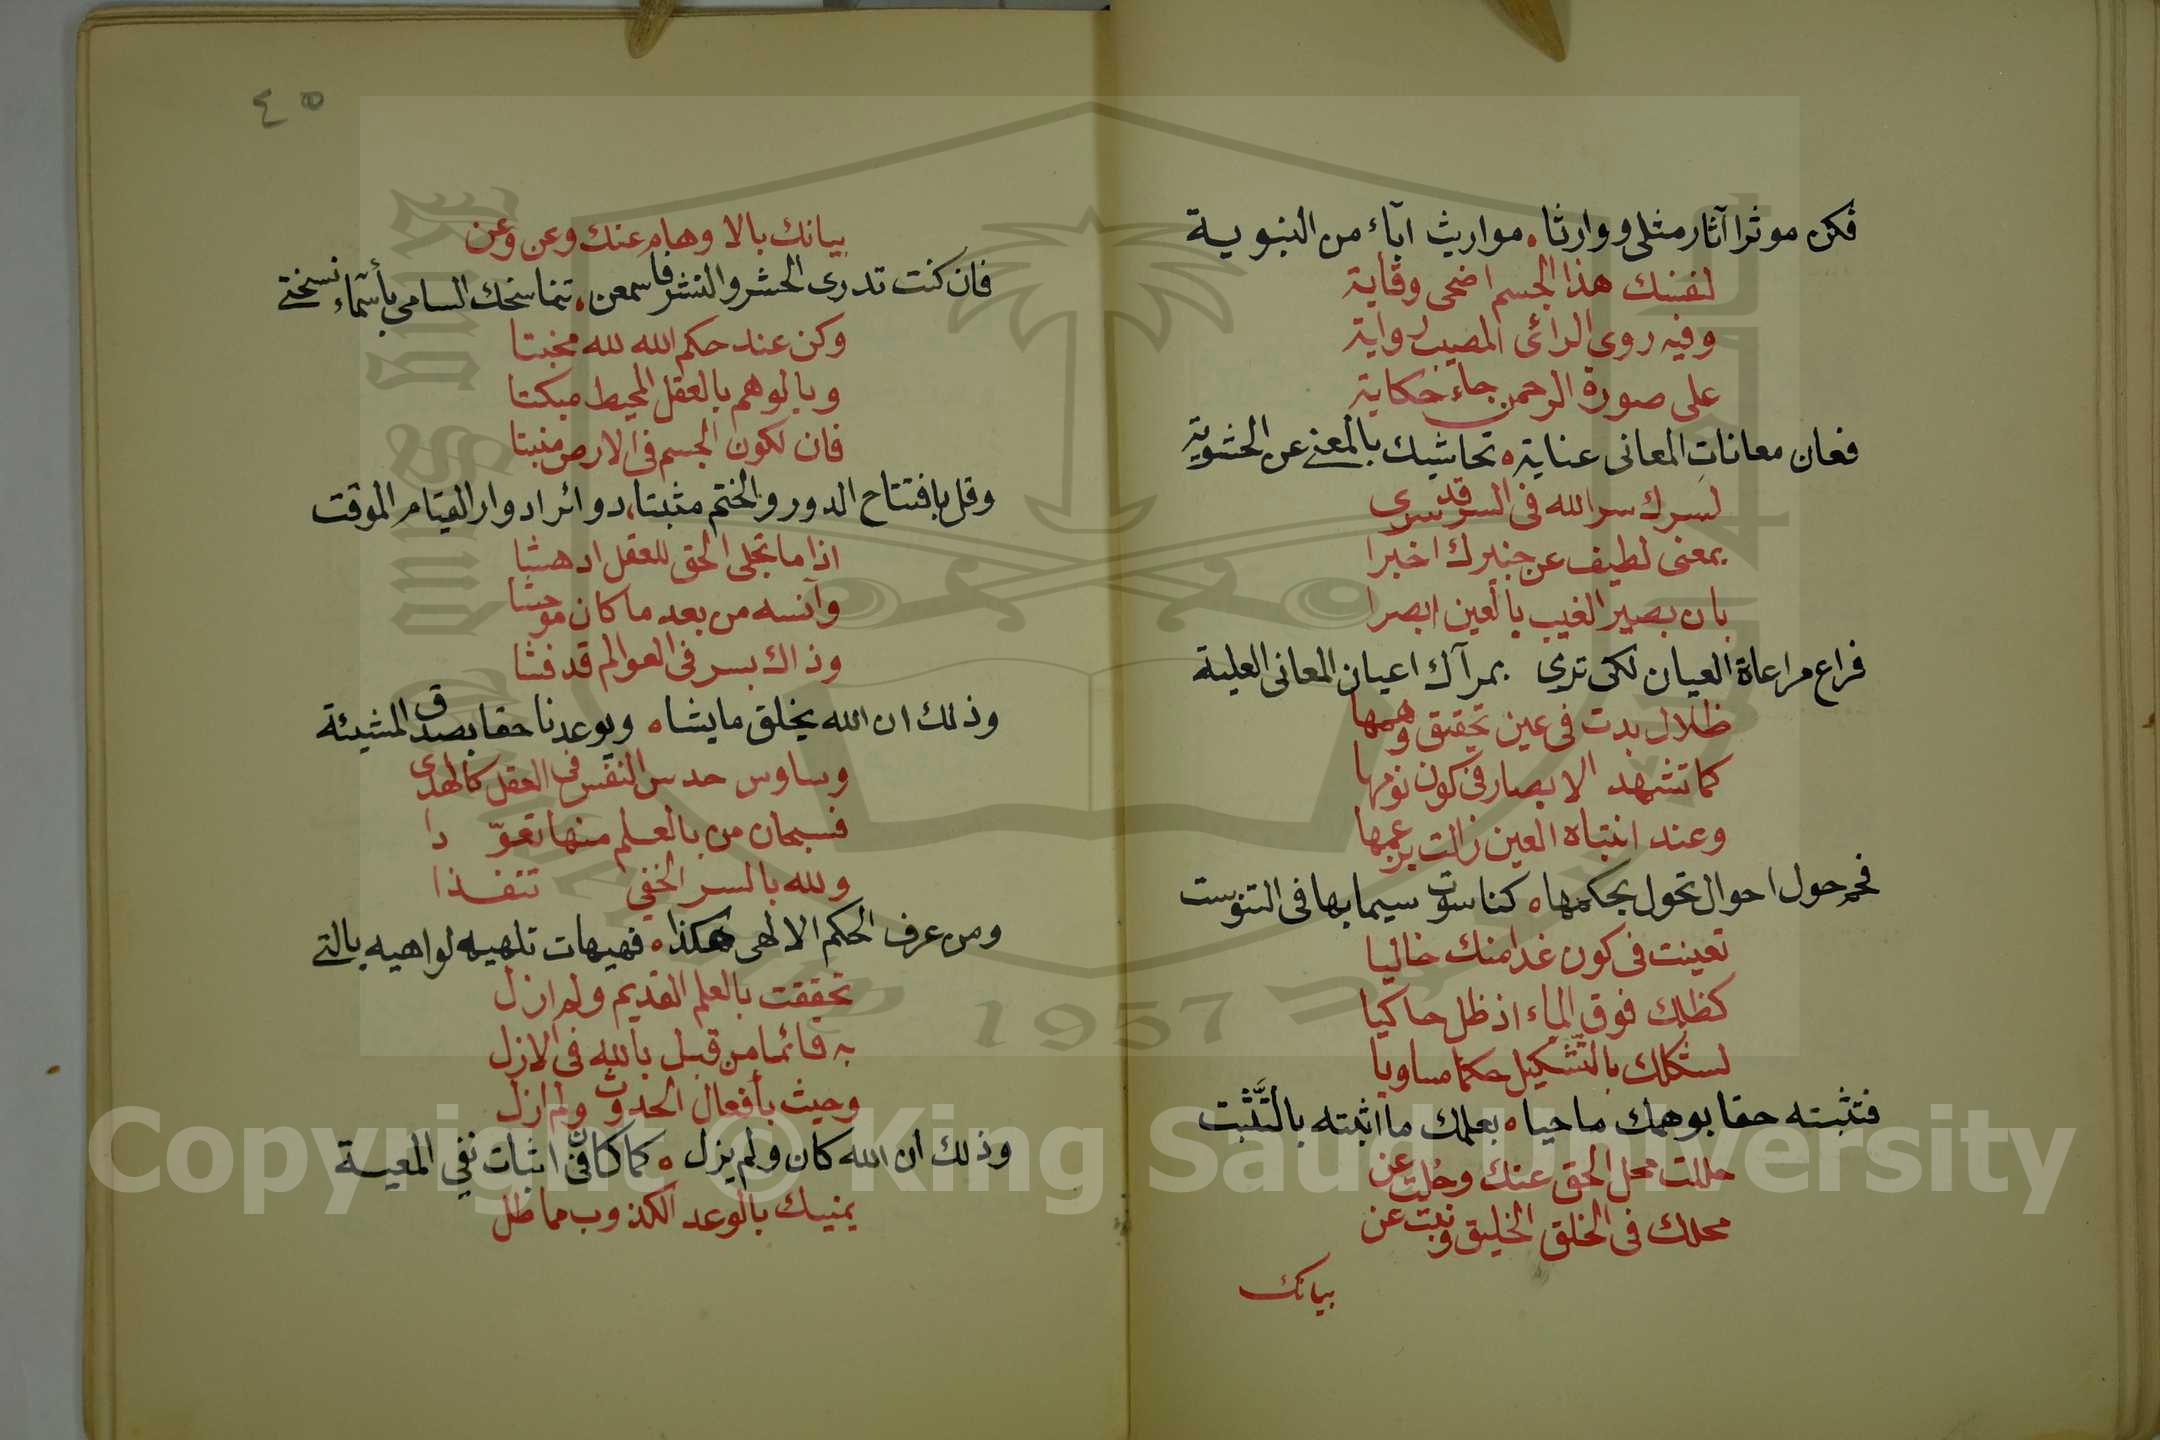 فكن موثرا آثار مثلى ووارثا ۰ مواريث آباء من النبوية
لنفسك هذا الجسم اضحى وقاية
وفيه روى الرائى المصيب رواية
على صورة الرحمن جاء حكاية
فعان معانات المعانى عناية ۰ تحاشيك بالمعنى عن الحشوية
لسرك سر الله فى السر قد سرى
بمعنى لطيف عن خبيرك اخبرا
بان بصير الغيب بالعين ابصرا
فراع مراعاة العيان لكى ترى بمرآك اعيان المعانى العلية
ظلال بدت فى عين تحقيق وهمها
كما تشهد الابصار فى كون نومها
وعند انتباه العين زالت بزعمها
حول احوال تحول بحكمها ۰ كناسوت سيما بها فى التنوست
تعينت فى كون غدا منك خاليا
كظلك فوق الماء اذ ظل حاكيا
لشكلك بالتشكيل حكما مساويا
فتثبته حقا بوهمك ماحيا ۰ بعلمك ما اثبته بالتثبت
حللت محل الحق عنك وحلت عن
محلك فى الخلق الخليق ونبت عن
بيانك
٤٥
بيانك بالاوهام عنك وعن وعن
فان كنت تدرى الحشر والنشر فاسمعن ۰ تناسخك السامى بأسماء نسختى
وكن عند حكم الله لله مخبتا
وبالوهم بالعقل المحيط مبكتا
فان لكون الجسم فى الارض منبتا
وقل بافتتاح الدور والختم مثبتا، دوائر ادوار القيام الموقت
اذا ما تجلى الحق للعقل ادهشا
وآنسه من بعد ما كان موحشا
وذاك بسر فى العوالم قد فشا
وذلك ان الله يخلق ما يشاء ويوعدنا حقا بصدق المشيئة
وساوس حدس النفس فى العقل كالهذى
فسبحان من بالعلم منها تعوّذا
ولله بالسر الخفي تنفذا
ومن عرف الحكم الالهى هكذا ۰ فهيهات تلهيه لواهيه بالتى
تحققت بالعلم القديم ولم ازل
به قائما من قبل بالله فى الازل
وحيث بأفعال الحدوث ولم ازل
وذلك ان الله كان ولم يزل ۰ كما كان فى اثبات نفي المعية
يمنيك بالوعد الكذوب مماطل
Copyright © King Saud University
1957